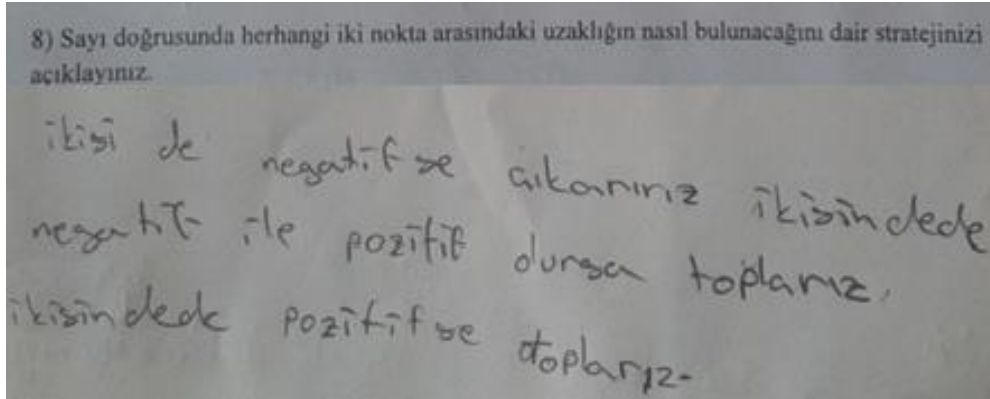 8) Sayı doğrusunda herhangi iki nokta arasındaki uzaklığın nasıl bulunacağını dair stratejinizi
açıklayınız.
ikisi de negatifse çıkarırız ikisindede
negatif ile pozitif dursa toplarız,
ikisindede pozitifse toplarız.